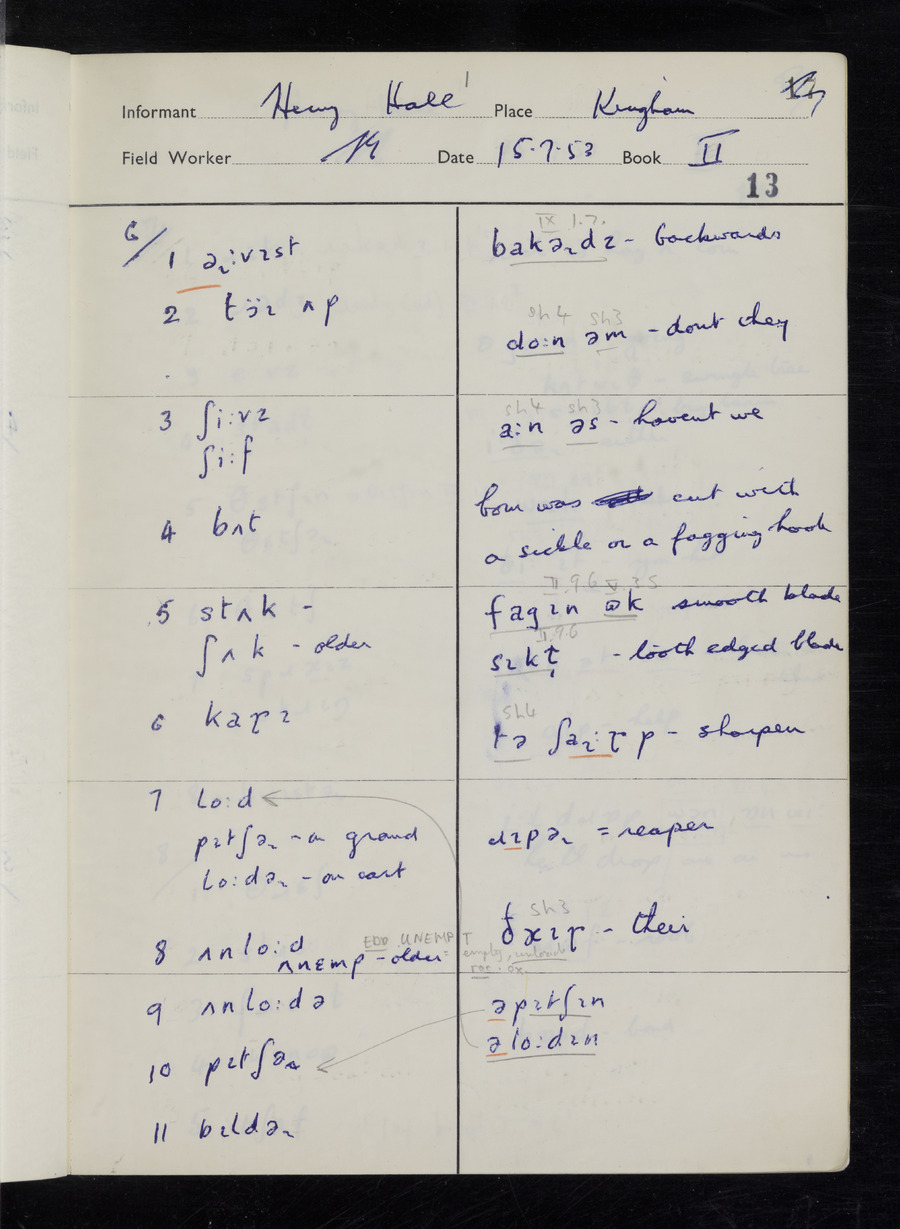 Informant Henry Hall Place Kingham
Field Worker Date 15.7.53 Book II
13
6/
1 əɻːvɪst
2 tɔ̈ɪ ʌp
3 ʃiːvz
ʃiːf
4 bʌt
5 stʌk -
ʃʌk - older
6 kaɽɪ
7 loːd
pɪtʃəɻ - on ground
loːdəɻ - on cart
8 ʌnloːd
ʌnɛmp - older
EDD UNEMPT
empty, unload
9 ʌnloːdə
10 pɪtʃəɻ
11 bɪldəɻ
IX 1.7.
bakəɻdz - backwards
Sh4 Sh3
doːn əm - dont they
Sh4 Sh3
aːn əs - havent we
was cut with
a sickle or a fagging hook
II.9.6 V 3 5
fagɪn ɷk smooth blade
II.9.6
sɪkɫ̩ - tooth edged blade
Sh4
tə ʃaɻːɽp - sharpen
ɹɪpəɻ = reaper
Sh3
- their
əpɪtʃɪn
əloːdɪn